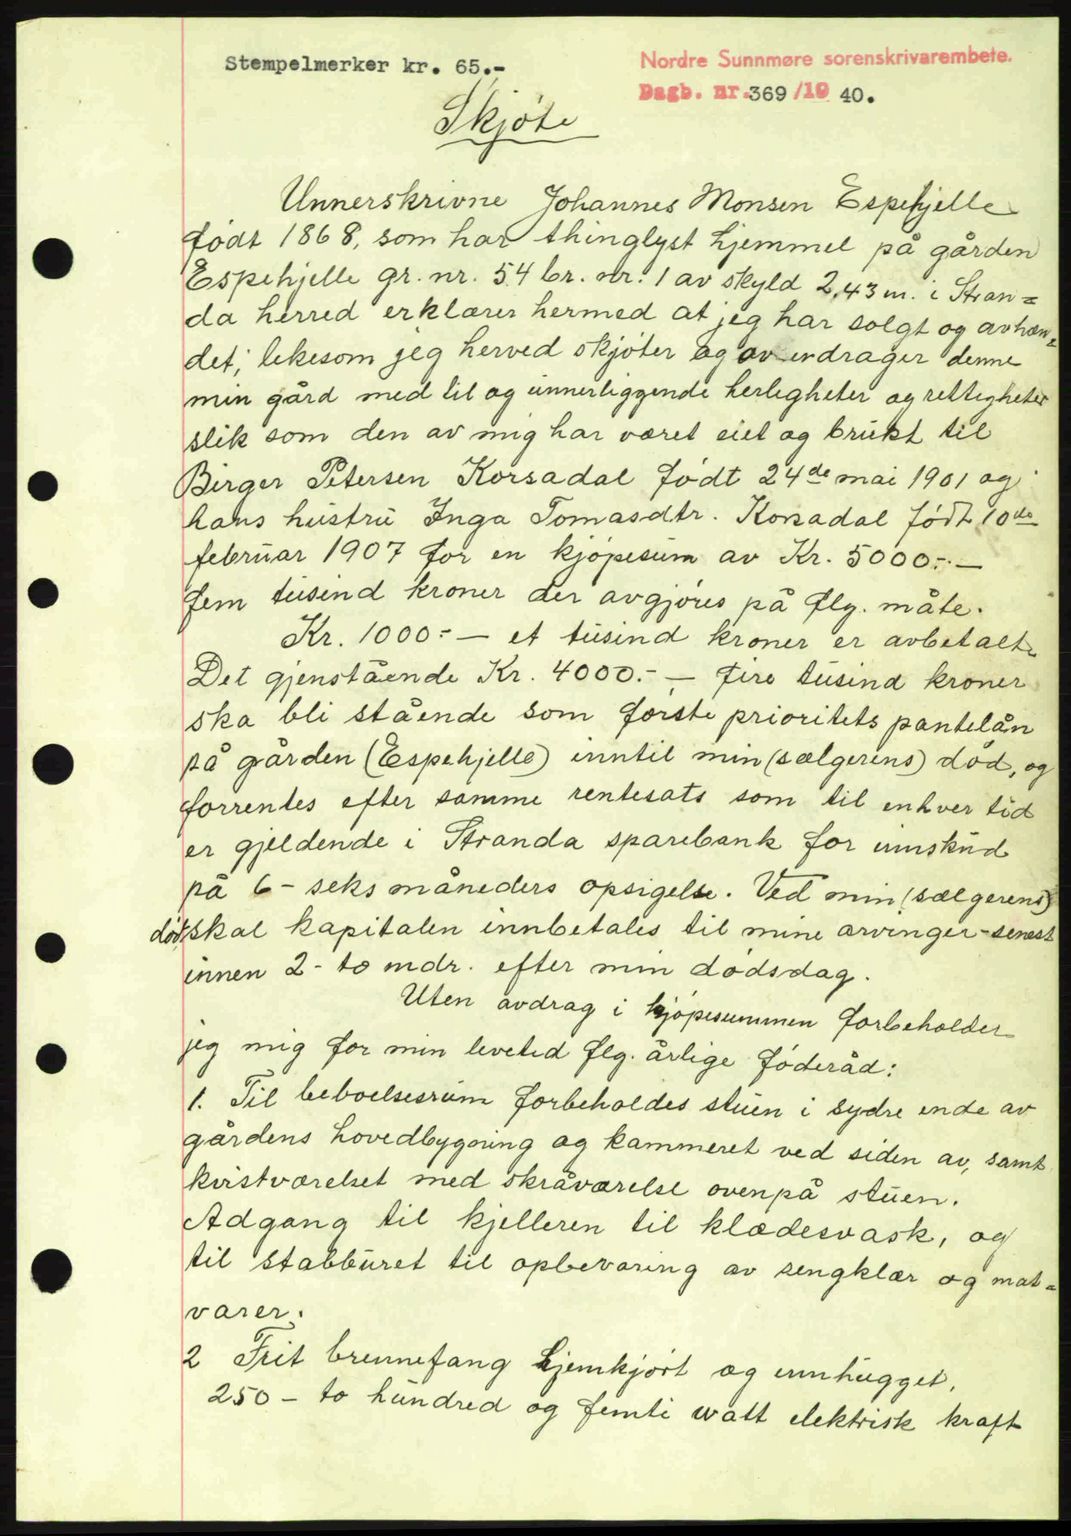 Stempelmerker kr. 65.-
Nordre Sunnmøre sorenskrivarembete.
Dagb. nr. 369 /19 40.
Skjøte
Unnerskrivne Johannes Monsen Espehjelle
født 1868, som har thinglyst hjemmel på gården
Espehjelle gr. nr. 54 br. nr. 1 av skyld 2,43 m. i Stran=
da herred erklærer hermed at jeg har solgt og avhæn=
det, likesom jeg herved skjøter og overdrager denne
min gård med til og unnerliggende herligheter og rettigheter
slik som den av mig har været eiet og brukt til
Birger Petersen Korsadal født 24de mai 1901 og
hans hustru Inga Tomasdtr. Korsadal født 10de
februar 1907 for en kjøpesum av Kr. 5000.-—
fem tusind kroner der avgjøres på flg. måte.
Kr. 1000.-— et tusind kroner er avbetalt.
Det gjenstående Kr. 4000.-— fire tusind kroner
ska bli stående som første prioritets pantelån
på gården (Espehjelle) inntil min (sælgerens) død, og
forrentes efter samme rentesats som til enhver tid
er gjeldende i Stranda sparebank for innskud
på 6- seks måneders opsigelse. Ved min (sælgerens)
død, skal kapitalen innbetales til mine arvinger - senest
innen 2- to mdr. efter min dødsdag.
Uten avdrag i kjøpesummen forbeholder
jeg mig for min levetid flg. årlige føderåd:
1. Til beboelsesrum forbeholdes stuen i sydre ende av
gårdens hovedbygning og kammeret ved siden av, samt
kvistværelset med skråværelse ovenpå stuen.
Adgang til kjelleren til klædesvask, og
til stabburet til opbevaring av sengklær og mat=
varer.
2 Frit brennefang hjemkjørt og unnhugget,
250- to hundred og femti watt elektrisk kraft